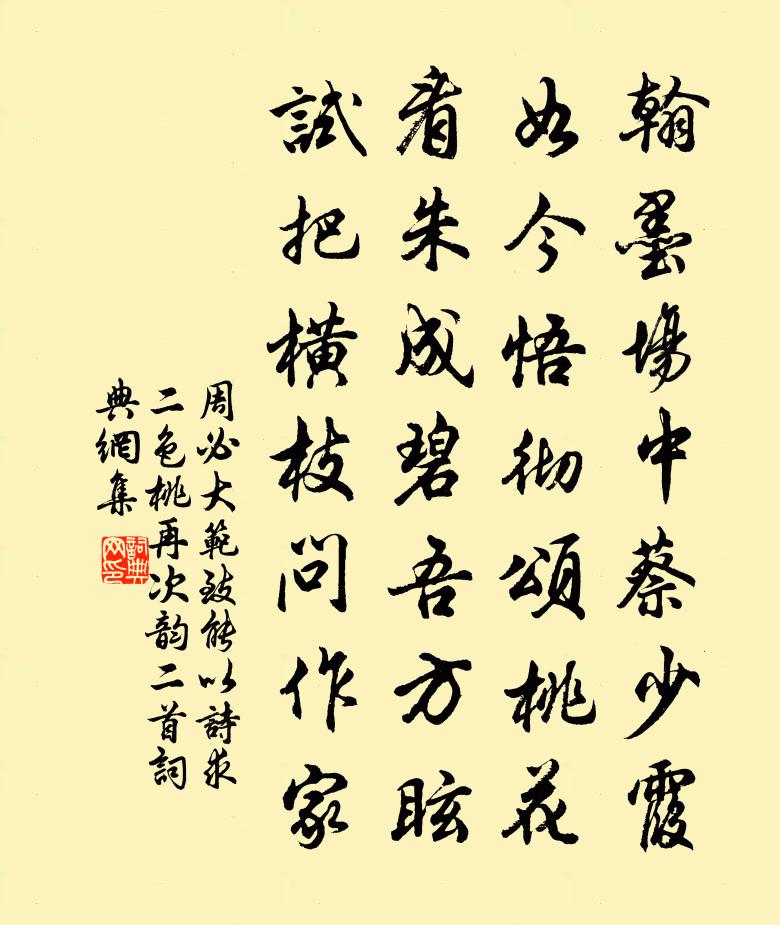 翰墨場中蔡少霞
如今悟彻頌桃花
看朱成碧吾方眩
試把橫枝問作家
周必大範致能以詩求
二色桃再次韵二首詞
典網集
詞典網印